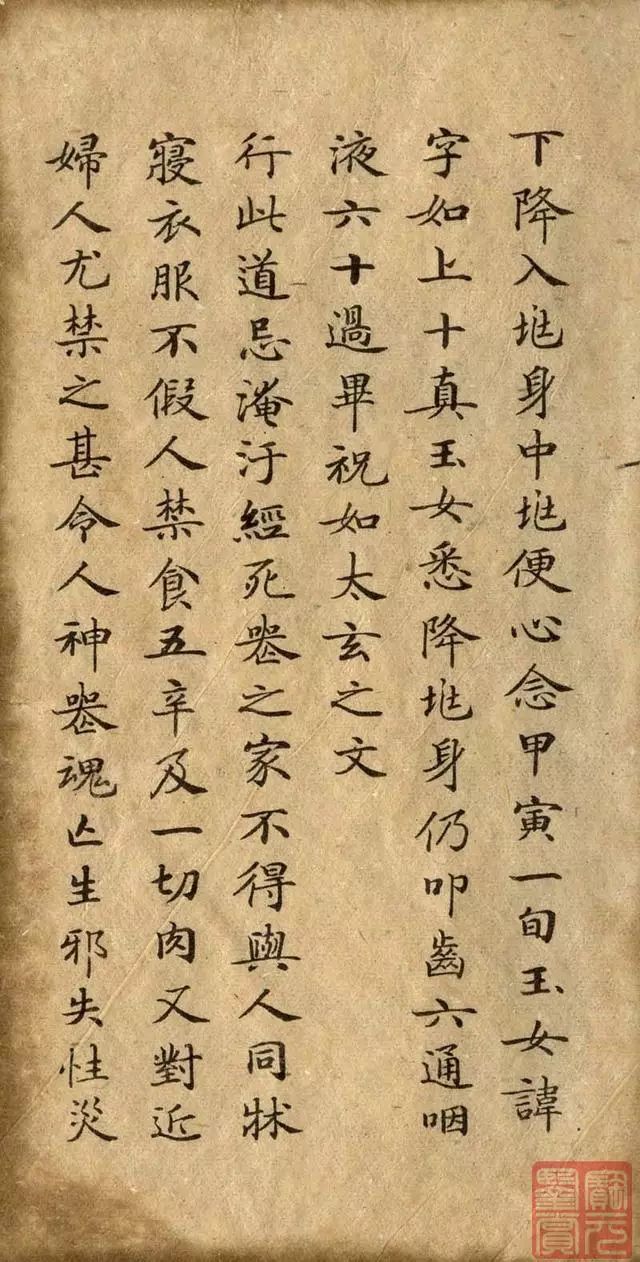 下降入垗身中垗便心念甲寅一旬玉女諱
字如上十真玉女悉降垗身仍叩齒六通咽
液六十過畢祝如太玄之文
行此道忌淹汙經死喪之家不得與人同牀
寢衣服不假人禁食五辛及一切肉又對近
婦人尤禁之甚令人神喪魂亡生邪失性災